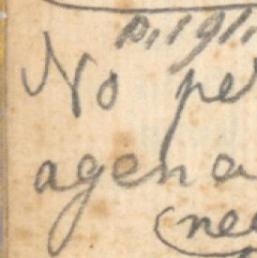 p. 191.
No pe
agena
(nee